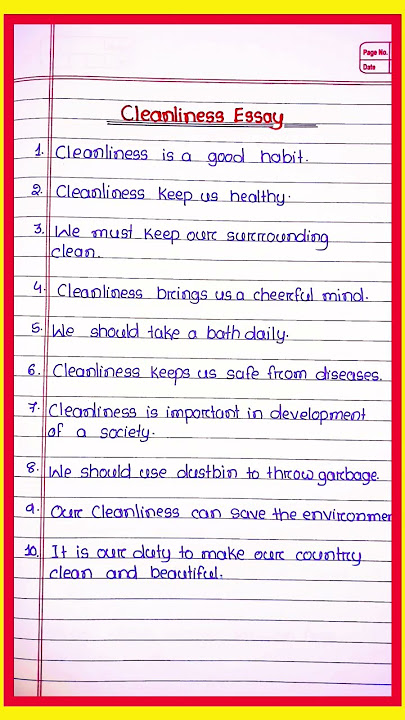 Page No.
Date
Cleanliness Essay
1. Cleanliness is a good habit.
2. Cleanliness keep us healthy.
3. We must keep our surrounding
clean.
4. Cleanliness brings us a cheerful mind.
5. We should take a bath daily.
6. Cleanliness keeps us safe from diseases.
7. Cleanliness is important in development
of a society.
8. We should use dustbin to throw garbage.
9. Our Cleanliness can save the environmen
10. It is our duty to make our country
clean and beautiful.